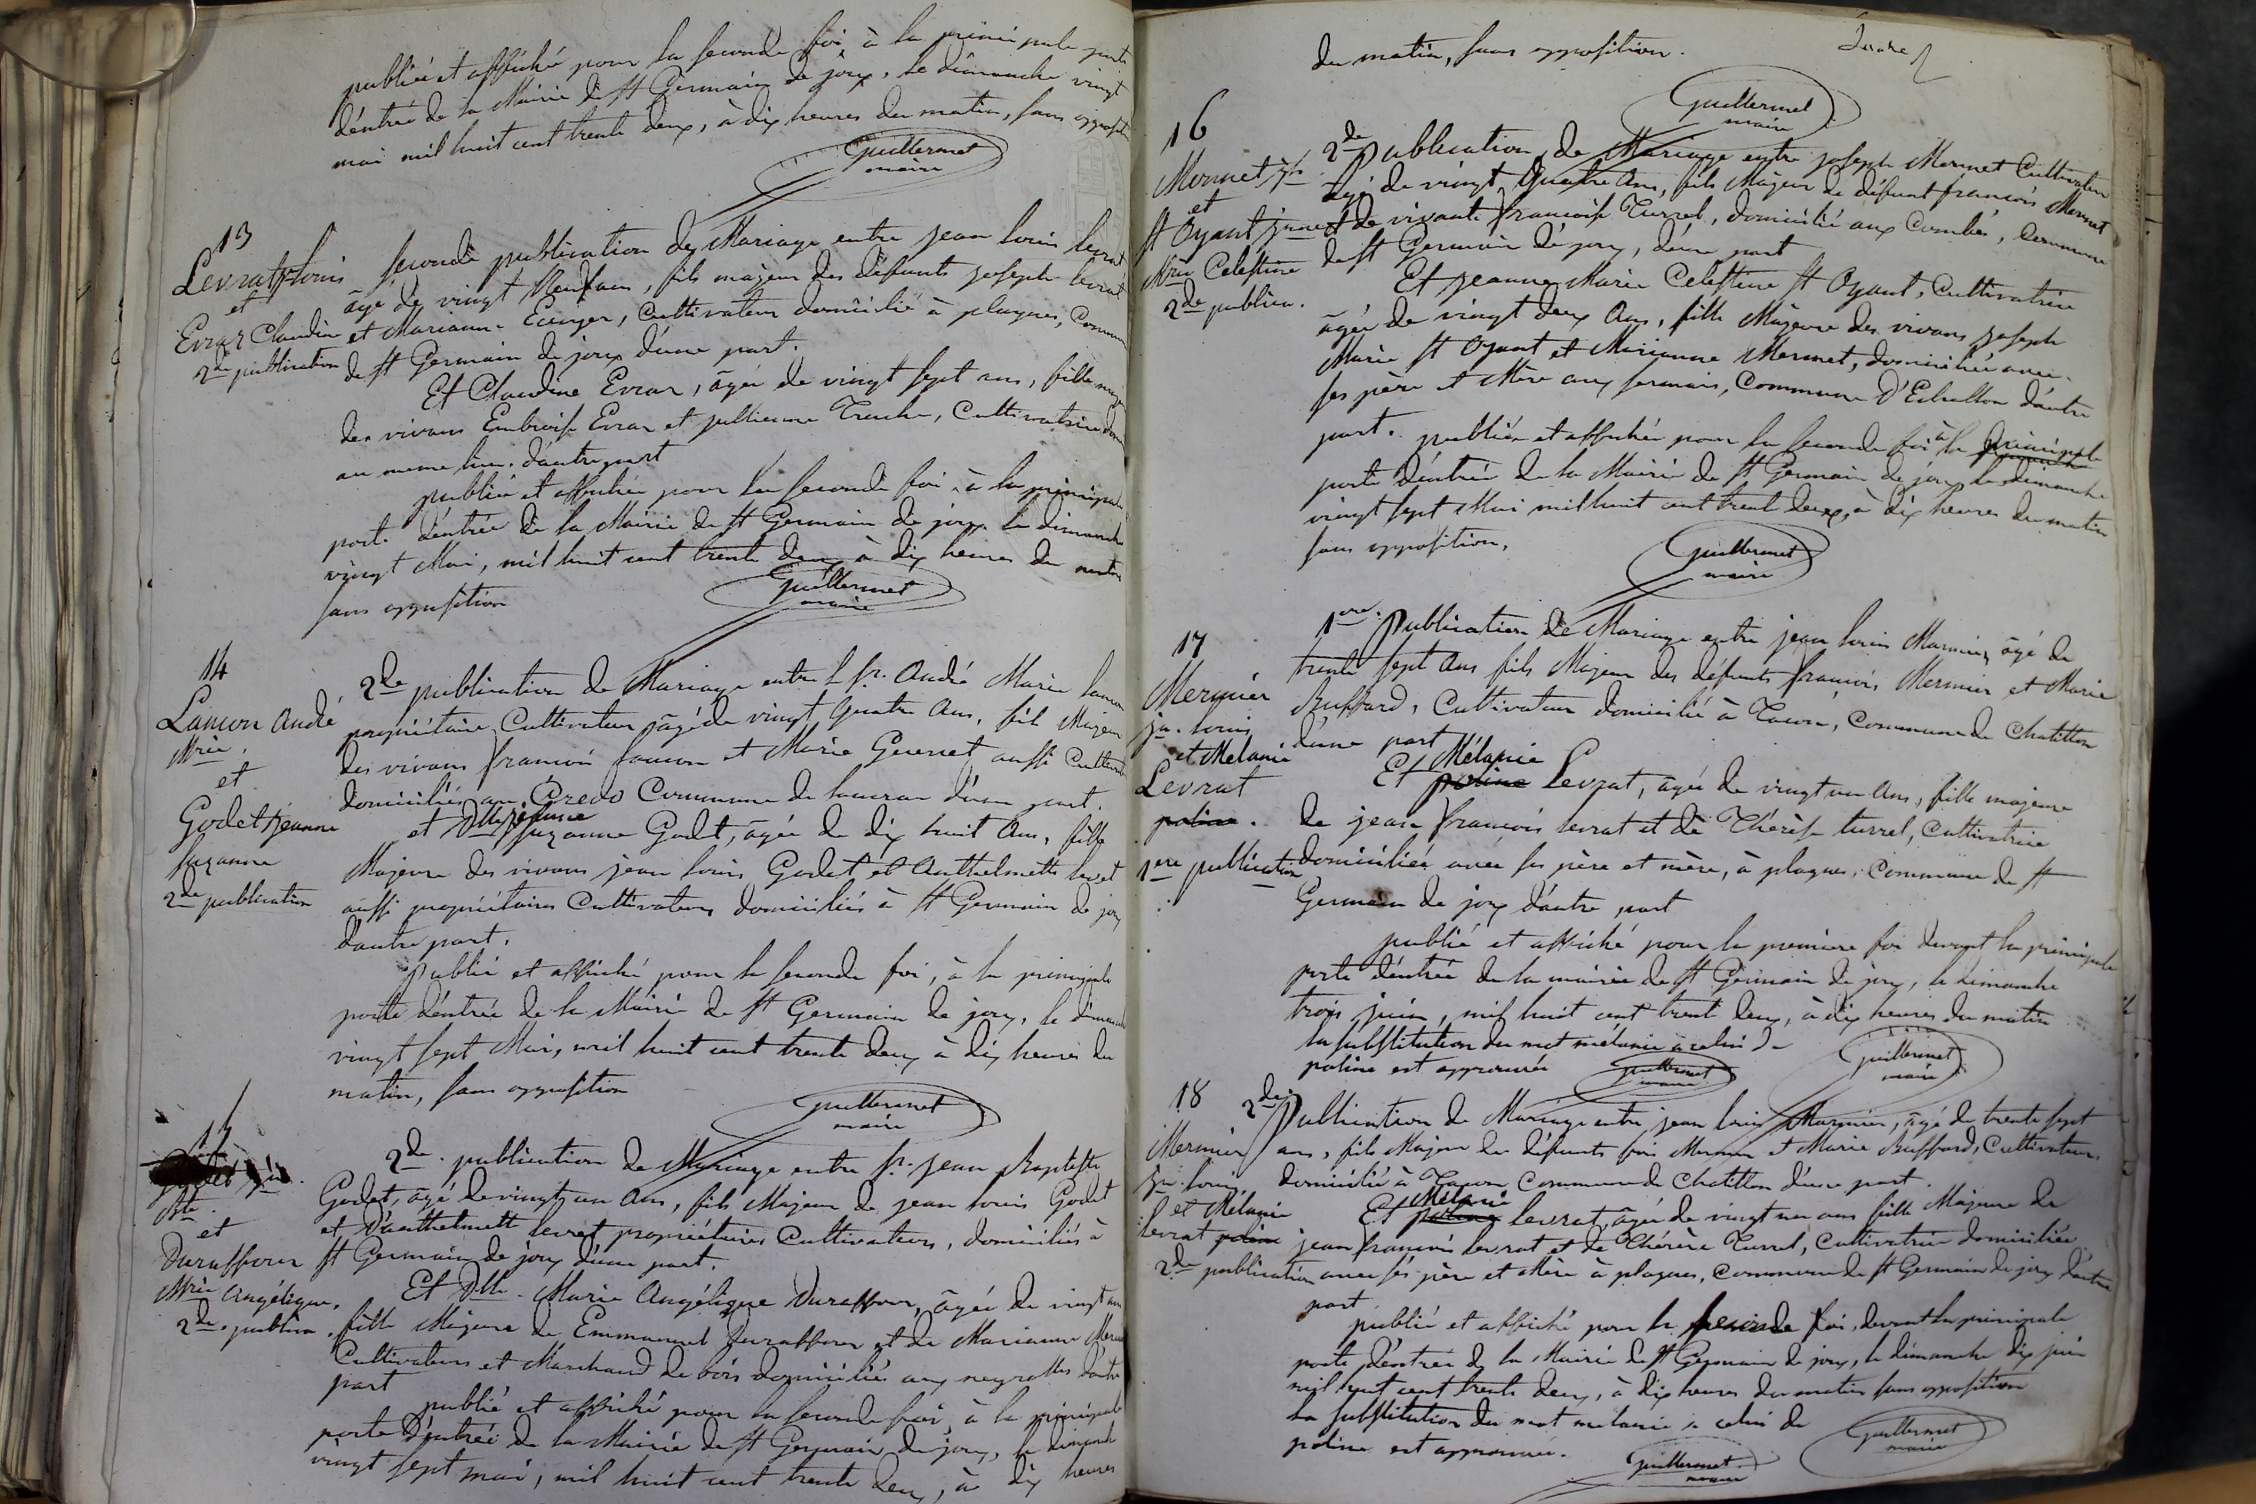 publiée et affiché pour la seconde foi, à la principale porte
d'éntrée de la Mairie de St Germain de joux, le dimanche vingt
mai mil huit cent trente deux, à dix heures du matin, sans opposition
Guillermet
maire
13
Levrat jn louis
et
Evrar Claudine
2de publication
seconde publication de Mariage entre jean louis levrat
âgé de vingt Neuf ans, fils majeur des défunts joseph levrat
et Marianne, Cultivateur domicilié à plagnes, Commune
de St Germain de joux d'une part.
Et Claudine Evrar, âgée de vingt sept ans, fille majeure
des vivans Embroise Evrar et jullienne, Cultivatrice
au meme lieu. d'autre part
publiée et affichée pour la seconde foi, à la principale
porte d'éntrée de la Mairie de St Germain de joux le dimanche
vingt Mai, mil huit cent trente deux à dix heures du matin
sans opposition
Guillermet
maire
14
Lançon André
Mrie
et
Godet Jeanne
Suzanne
2de publication
2de publication de Mariage entre le Sr. André Marie lançon
propriétaire Cultivateur âgé de vingt Quatre Ans, fils Majeur
des vivans françois lançon et Marie Gennet aussi Cultivateurs
domiciliés au Credo Commune de lancran d'une part.
et Dlle jeanne Suzanne Godet, âgée de dix huit Ans, fille
Majeure des vivans jean louis Godet et Anthelmette levret
aussi propriétaires Cultivateurs domiciliés à St Germain de joux
d'autre part.
Publié et affiché pour la seconde foi, à la principale
porte d'éntrée de la Mairie de St Germain de joux, le dimanche
vingt sept Mai, mil huit cent trente deux à dix heures du
matin, sans opposition
Guillermet
maire
15
Godet jn
Bte
et
Duraffour
Mrie Angélique,
2de publica.
2de publication de Mariage entre Sr. jean Baptiste
Godet, âgé de vingt un Ans, fils Majeur de jean louis Godet
et d'anthelmette levret propriétaires Cultivateurs, domiciliés à
St Germain de joux d'une part.
Et Dlle Marie Angélique Duraffour, âgée de vingt
fille Majeure de Emmanuel Duraffour et de Marianne
Cultivateurs et Marchand de bois domiciliés aux neyrolles d'autre
part
publié et affiché pour la seconde foi à la principale
porte d'éntrée de la Mairie de St Germain de joux, le dimanche
vingt sept mai, mil huit cent trente deux, à dix heures
du matin, sans opposition.
Guillermet
maire
16
Mermet jh
et
St Oyant jnne
Mrie Celestine
2de publica.
2de Publication de Mariage entre joseph Mermet Cultivateur
âgé de vingt Quatre Ans, fils Majeur de défunt françois Mermet
et de vivante françoise Turrel, domicilié aux Combes, Commune
de St Germain de joux, d'une part
Et jeanne Marie Celestine St Oyant, Cultivatrice
âgée de vingt deux Ans, fille Majeure des vivans joseph
Marie St Oyant et Marianne Mermet, domiciliée avec
ses père et Mère aux, Commune D'Echallon d'autre
part. publiée et affichée pour la seconde foi à la principale
porte d'éntrée de la Mairie de St Germain de joux le dimanche
vingt sept Mai mil huit cent trent deux, à dix heures du matin
sans opposition.
Guillermet
maire
17
Mermier
jn. louis
et Mélanie
Levrat
poline.
1ere publication
1ere Publication de Mariage entre jean louis Mermier, âgé de
trente sept Ans fils Majeur des défunts françois Mermier et Marie
Buffard, Cultivateur domicilié à Tacon, Commune de Chatillon
d'une part
Mélanie
Et poline Levrat, âgée de vingt un Ans, fille majeure
de jean françois levrat et de Thérèse turrel, Cultivatrice
domiciliée avec ses père et mère, à plagnes, Commune de St
Germain de joux d'autre part
publié et affiché pour la premiere foi devant la principale
porte d'éntrée de la mairie de St Germain de joux, le dimanche
trois juin, mil huit cent trent deux, à dix heures du matin
la substitution du mot mélanie à celui de
poline est approuvée
Guillermet
maire
Guillermet
maire
18
Mermier
jn. louis
et Mélanie
levrat poline
2de publication
2de Publication de Mariage entre jean louis Mermier, âgé de trente sept
ans, fils Majeur des défunts fois Mermier et Marie Buffard, Cultivateur
domicilié à Tacon Commune de Chatillon d'une part.
Mélanie
Et poline levrat, âgée de vingt un ans fille Majeure de
jean françois levrat et de Thérèse Turrel, Cultivatrice domiciliée
avec ses père et Mère à plagnes, Commune de St Germain de joux d'autre
part
publié et affiché pour la seconde foi, devant la principale
porte d'éntrée de la Mairie de St Germain de joux, le dimanche dix juin
mil huit cent trente deux, à dix heures du matin sans opposition
la substitution du mot mélanie à celui de
poline est approuvée.
Guillermet
maire
Guillermet
maire